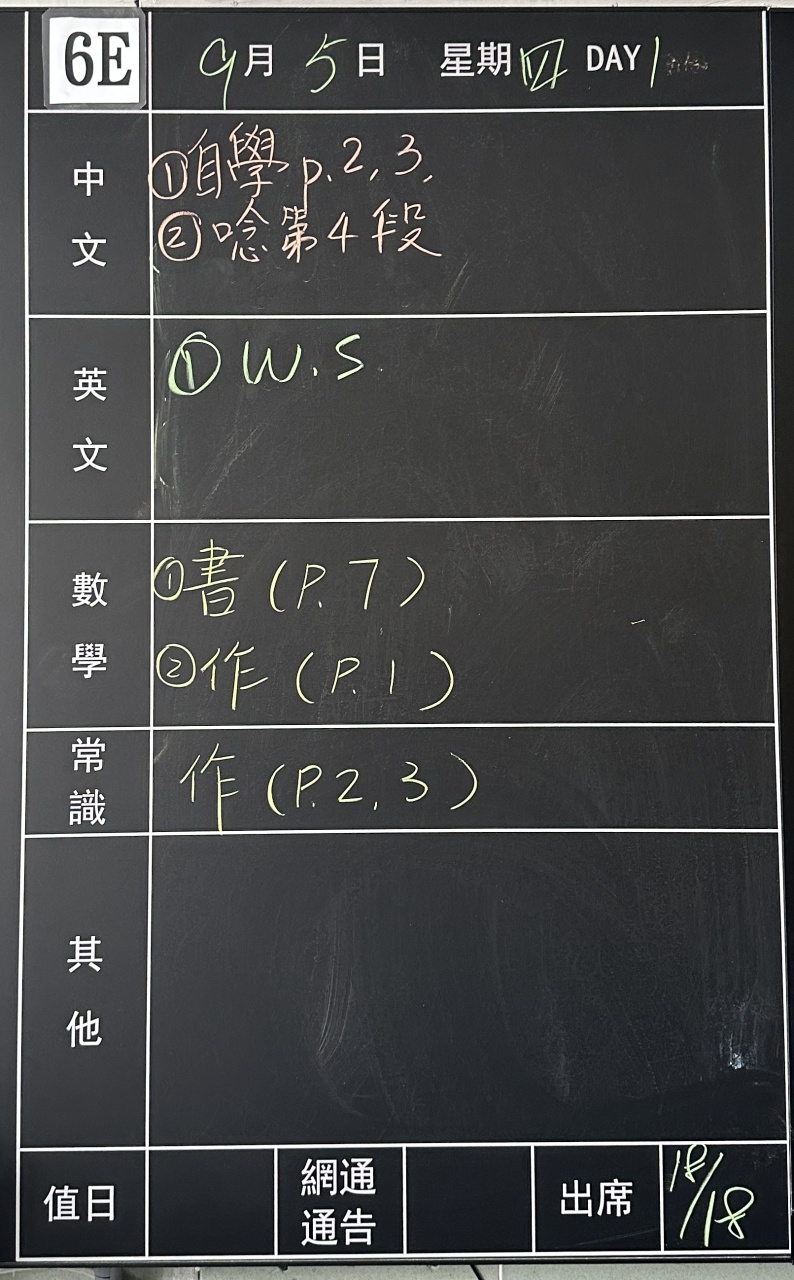 6E 9月5日 星期四 DAY 1
中文
①自學 p.2,3.
②唸第4段
英文
① W.S
數學
①書 (P.7)
②作 (P.1)
常識
作 (P.2,3)
其他
值日
網通
通告
出席
18/18